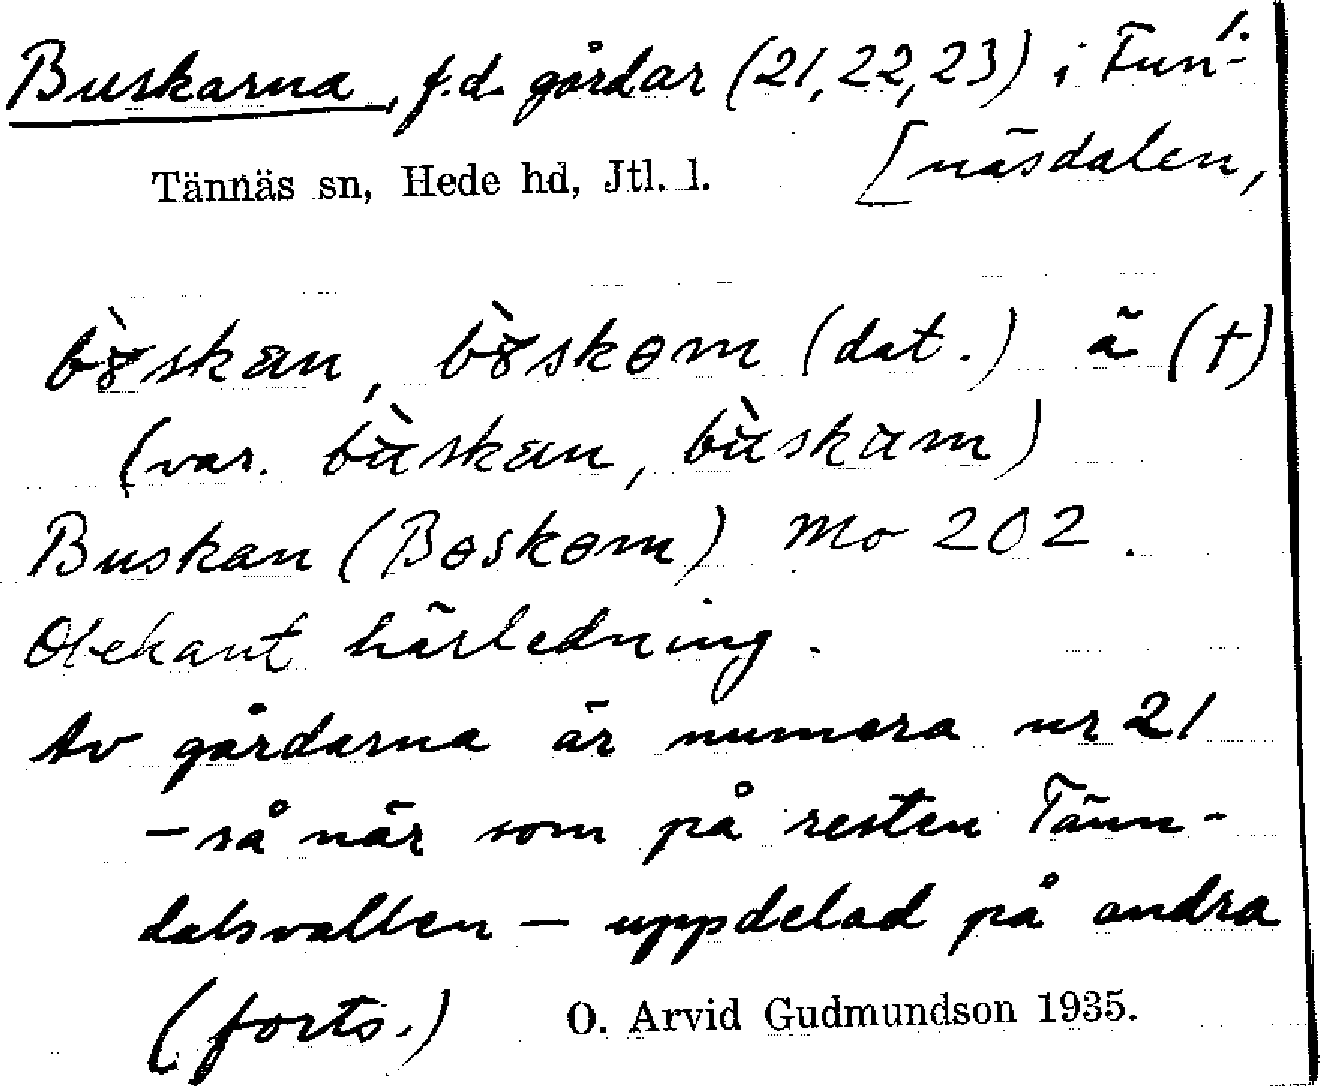 1.
Buskarna, f.d. gårdar (21, 22, 23) i Fun-
[näsdalen,
Tännäs sn, Hede hd, Jtl. l.
bɤ̀skan, bɤ̀skɵm (dat.) ä (†)
(var. bùskan, bùskum)
Buskan (Bɵskɵm) Mo 202.
Obekant härledning.
Av gårdarna är numera nr 21
– så när som på resten Tänn-
dalsvallen – uppdelad på andra
(forts.)
O. Arvid Gudmundson 1935.